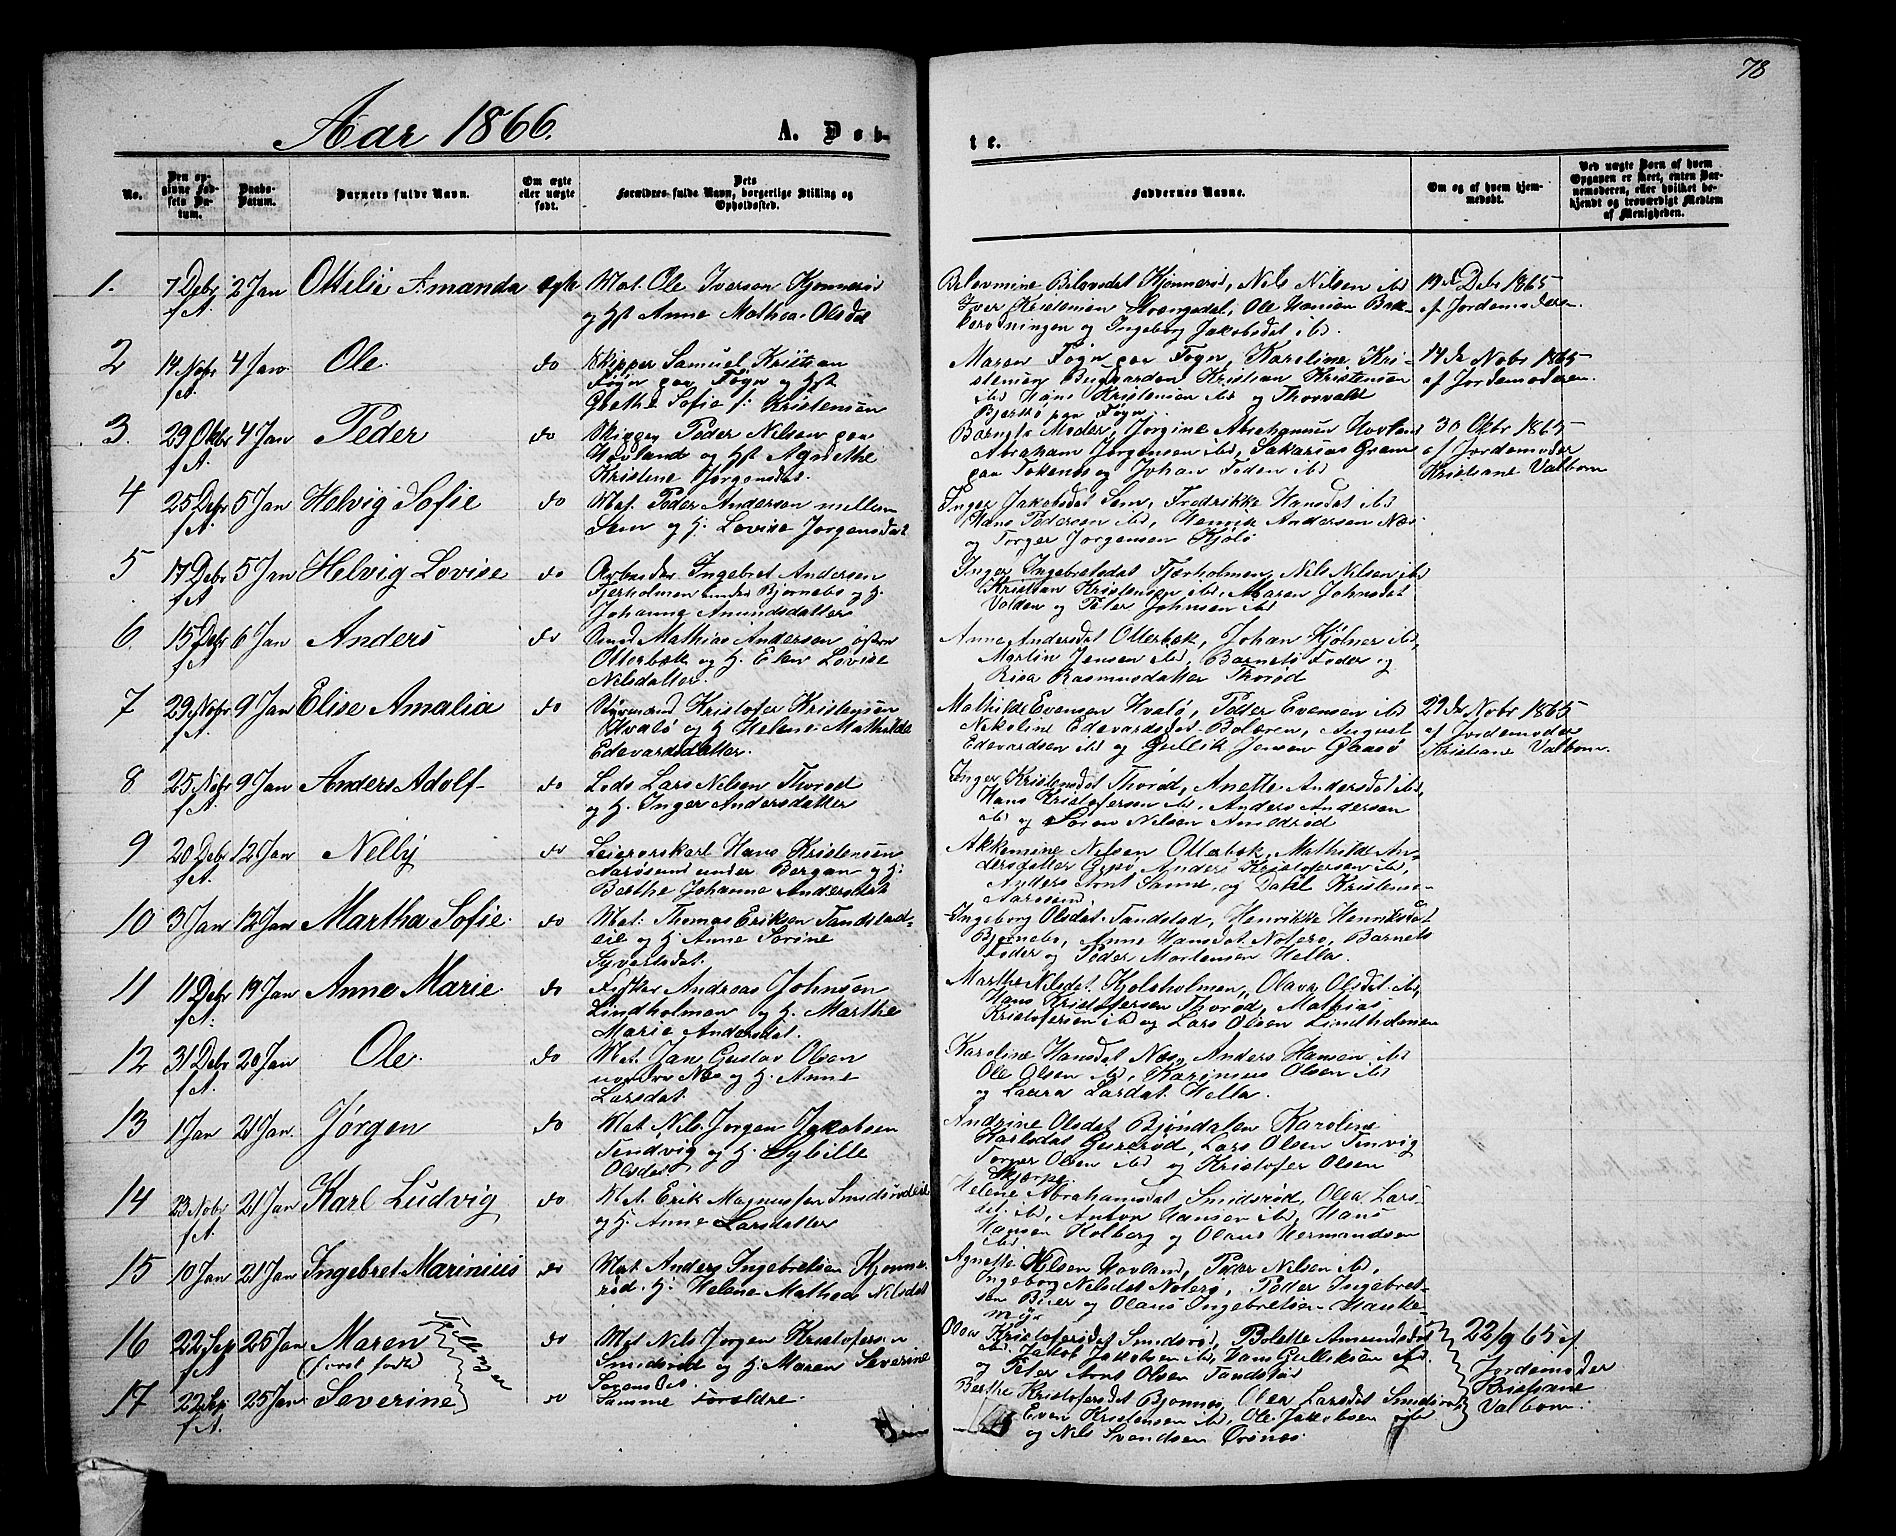 78
Aar 1866.
A. Døb-
te.
No.
Den op-
givne Fød-
sels Da-
tum.
Daabs-
Datum.
Barnets fulde Navn.
Om ægte
eller uægte
født.
Dets
Forældres fulde Navn, borgerlige Stilling og
Opholdssted.
Faddernes Navne.
Om og af hvem hjem-
medøbt.
Ved uægte Børn af hvem
Opgaven er skeet, enten Bar-
nemoderen, eller hvilket be-
kjendt og troværdigt Medlem
af Menigheden.
1. 7 Debr f A. 2 Jan Ottilie Amanda ægte Mat. Ole Iverson Kjønnerød
og Hst Anne Mathea Olsdat
Nils Nilsen ibd
Iver Kristensen Ole Hansen Bak-
og Ingeborg Jakobsdat ibd.
19de Debr 1865
af Jordemoderen.
2 14 Nobr f A. 4 Jan Ole. do Skipper Samuel Kristian
Føyn paa Føyn og Hst
Grethe Sofie f. Kristensen
Maren Føyn paa Føyn, Karoline Kri-
stensen Kristian Kristensen
ibd Hans Kristensen ibd og Thorvald
Bjerkø paa Føyn.
14de Nobr 1865
af Jordemoderen.
3. 29 Oktbr f A. 4 Jan Peder do Skipper Peder Nilsen paa
Hovland og Hst Agnethe
Kristine Jørgensdat.
Barnets Moder, Jørgine Abrahamsen Hovland
Abraham Jørgensen ibd, Sakarias Gram
paa og Johan Foden ibd
30 Oktbr 1865
af Jordemoder
Kristiane Valbom
4 25 Debr f A. 5 Jan Helvig Sofie do Mat. Peder Andersen mellem
Sem og H. Lovise Jørgensdat
Inger Jakobsdat Sem, Fredrikke Hansdat ibd
Hans Pedersen ibd, Henrik Andersen Næs
og Torger Jørgensen Kjølø
5 17 Debr f A 5 Jan Helvig Lovise do Arbeider Ingebret Andersen
Fjærholmen under Bjørnebo og H.
Johanne Amundsdatter
Inger Ingebretsdat Fjærholmen, Nils Nilsen ibd
Kristian Kristensen ibd, Maren Johnsdat
Valden og Peter Johnsen ibd
6. 15 Debr f A. 6 Jan Anders do Mathias Andersen østre
Otterbæk og H. Elen Lovise
Nilsdatter.
Anne Andersdat Otterbæk, Johan Kjølner ibd,
Martin Jensen ibd, Barnets Fader og
Risa Rasmusdatter Thorød
7 29 Nobr f A. 9 Jan Elise Amalia do Kristofer Kristensen
Hvalø og H Helene Mathilde
Edevardsdatter.
Mathilde Evensen Hvalø, Peder Evensen ibd
Nikoline Edevardsdat Bolæren, August
Edevardsen ibd og Gullik Jensen Gaasø
29de Nobr 1865
af Jordemoder
Kristiane Valbom.
8 25 Nobr f A. 9 Jan Anders Adolf do Lods Lars Nilsen Thorød
og H. Inger Andersdatter
Inger Kristensdat Thorød, Anette Andersdat ibd,
Hans Kristofersen ibd. Anders Andersen
ibd og Søren Nilsen Amildrød
9 20 Debr f A. 12 Jan Nelly do Hans Kristensen
Aarøsund under Bergan og H:
Berthe Johanne Andersdat
Akkemine Nilsen Otterbæk, Mathilde An-
dersdatter Anders Kristofersen ibd,
Anders Arnt Sande, og Dahl Kristense
Aarøsund.
10 3 Jan 12 Jan Martha Sofie. do Mat. Thomas Eriksen Tandstad-
eie og H. Anne Sorine
Syvertsdat.
Ingeborg Olsdat Tandstad, Henrikke Henriksdat
Bjørnebo, Anne Hansdat Noterø, Barnets
Fader og Peder Mortensen Hella.
11 11 Debr f A. 19 Jan Anne Marie do Fisker Andreas Johnsen
Lindholmen og H. Marthe
Marie Andersdat.
Marthe Nilsdat Kjølholmen, Olava Olsdat ibd,
Hans Kristofersen Thorød, Mathias
Kristofersen ibd og Lars Olsen Lindholmen
12 31 Debr f A. 20 Jan Ole. do Mat. Jan Gustav Olsen
Næs og H. Anne
Larsdat.
Karoline Hansdat Næs, Anders Hansen ibd
Ole Olsen ibd, Karinius Olsen ibd
og Laura Larsdat Hella.
13 1 Jan 21 Jan. Jørgen do Mat Nils Jørgen Jakobsen
Tendvig og H. Sybille
Olsdat
Andrine Olsdat Bjøndalen Karoline
Karlsdat Lars Olsen Tenvig
Torger Olsen ibd og Kristofer Olsen
Skjerpe.
14 23 Nobr f A. 21 Jan Karl Ludvig do Mat. Erik Magnussen Smidsrødeie
og H. Anne Larsdatter
Helene Abrahamsdat Smidsrød, Olea Lars-
dat ibd, Anton Hansen ibd, Hans
Hansen Holberg og Olaus Hermandsen
ibd
15 10 Jan 21 Jan Ingebret Marinius do Mat Anders Ingebretsen Kjønne-
rød. H: Helene Mathea Nilsdat
Agnethe Nilsen Hovland, Peder Nilsen ibd,
Ingeborg Nilsdat Noterø, Peder Ingebret-
sen Bier og Olaus Ingebretsen Hauke-
myr
16 22 Sep f A 25 Jan Maren
(først født)
Tvillinger
do Mat Nils Jørgen Kristofersen
Smidsrød og H. Maren Severine
Sørensdat.
Olea Kristofersdat Smidsrød, Bolette Amundsdat
ibd. Jakob Jakobsen ibd, Hans Gulliksen ibd.
og Peter Arnt Olsen Tandstad
22/9 65 af
Jordemoder
Kristiane
Valbom.
17 22 Sep f A. 25 Jan Severine do Samme Forældre.
Berthe Kristofersdat Bjønnes, Olea Larsdat Smidsrød
Even Kristensen ibd, Ole Jakobsen ibd
og Nils Svendsen Ørsnes